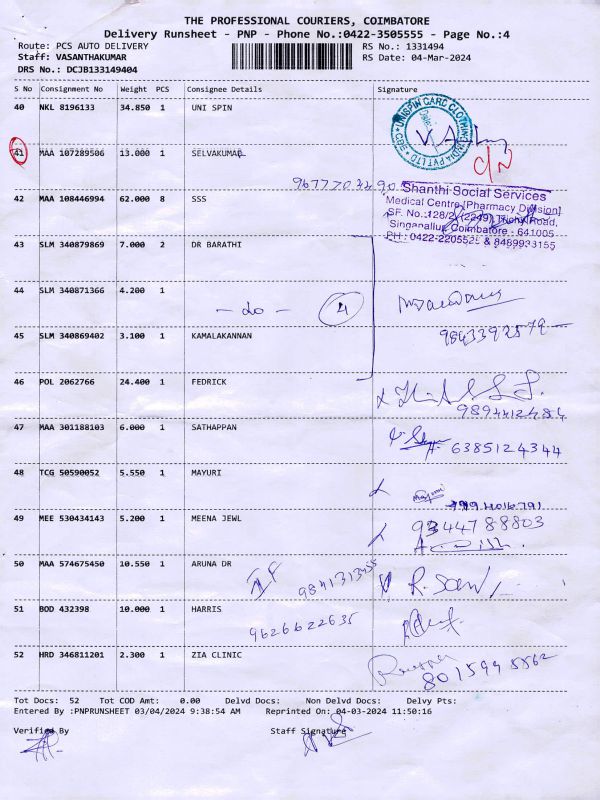 THE PROFESSIONAL COURIERS, COIMBATORE
Delivery Runsheet - PNP - Phone No.:0422-3505555 - Page No.:4
Route: PCS AUTO DELIVERY RS No.: 1331494
Staff: VASANTHAKUMAR RS Date: 04-Mar-2024
DRS No.: DCJB133149404
S No Consignment No Weight PCS Consignee Details Signature
40 NKL 8196133 34.850 1 UNI SPIN
41 MAA 107289506 13.000 1 SELVAKUMAR
C/N
42 MAA 108446994 62.000 8 SSS
Shanthi Social Services
Medical Centre [Pharmacy Division]
SF. No.:128/2 (2249), Trichy Road,
Singanallur, Coimbatore - 641005
PH : 0422-2205525 & 8489933155
43 SLM 340879869 7.000 2 DR BARATHI
44 SLM 340871366 4.200 1
- do - 4
9843392579
45 SLM 340869402 3.100 1 KAMALAKANNAN
46 POL 2062766 24.400 1 FEDRICK
9894412484
47 MAA 301188103 6.000 1 SATHAPPAN
6385124344
48 TCG 50590052 5.550 1 MAYURI
49 MEE 530434143 5.200 1 MEENA JEWL
9344788803
50 MAA 574675450 10.550 1 ARUNA DR
51 BOD 432398 10.000 1 HARRIS
9626622635
52 HRD 346811201 2.300 1 ZIA CLINIC
Tot Docs: 52 Tot COD Amt: 0.00 Delvd Docs: Non Delvd Docs: Delvy Pts:
Entered By :PNPRUNSHEET 03/04/2024 9:38:54 AM Reprinted On: 04-03-2024 11:50:16
Verified By Staff Signature